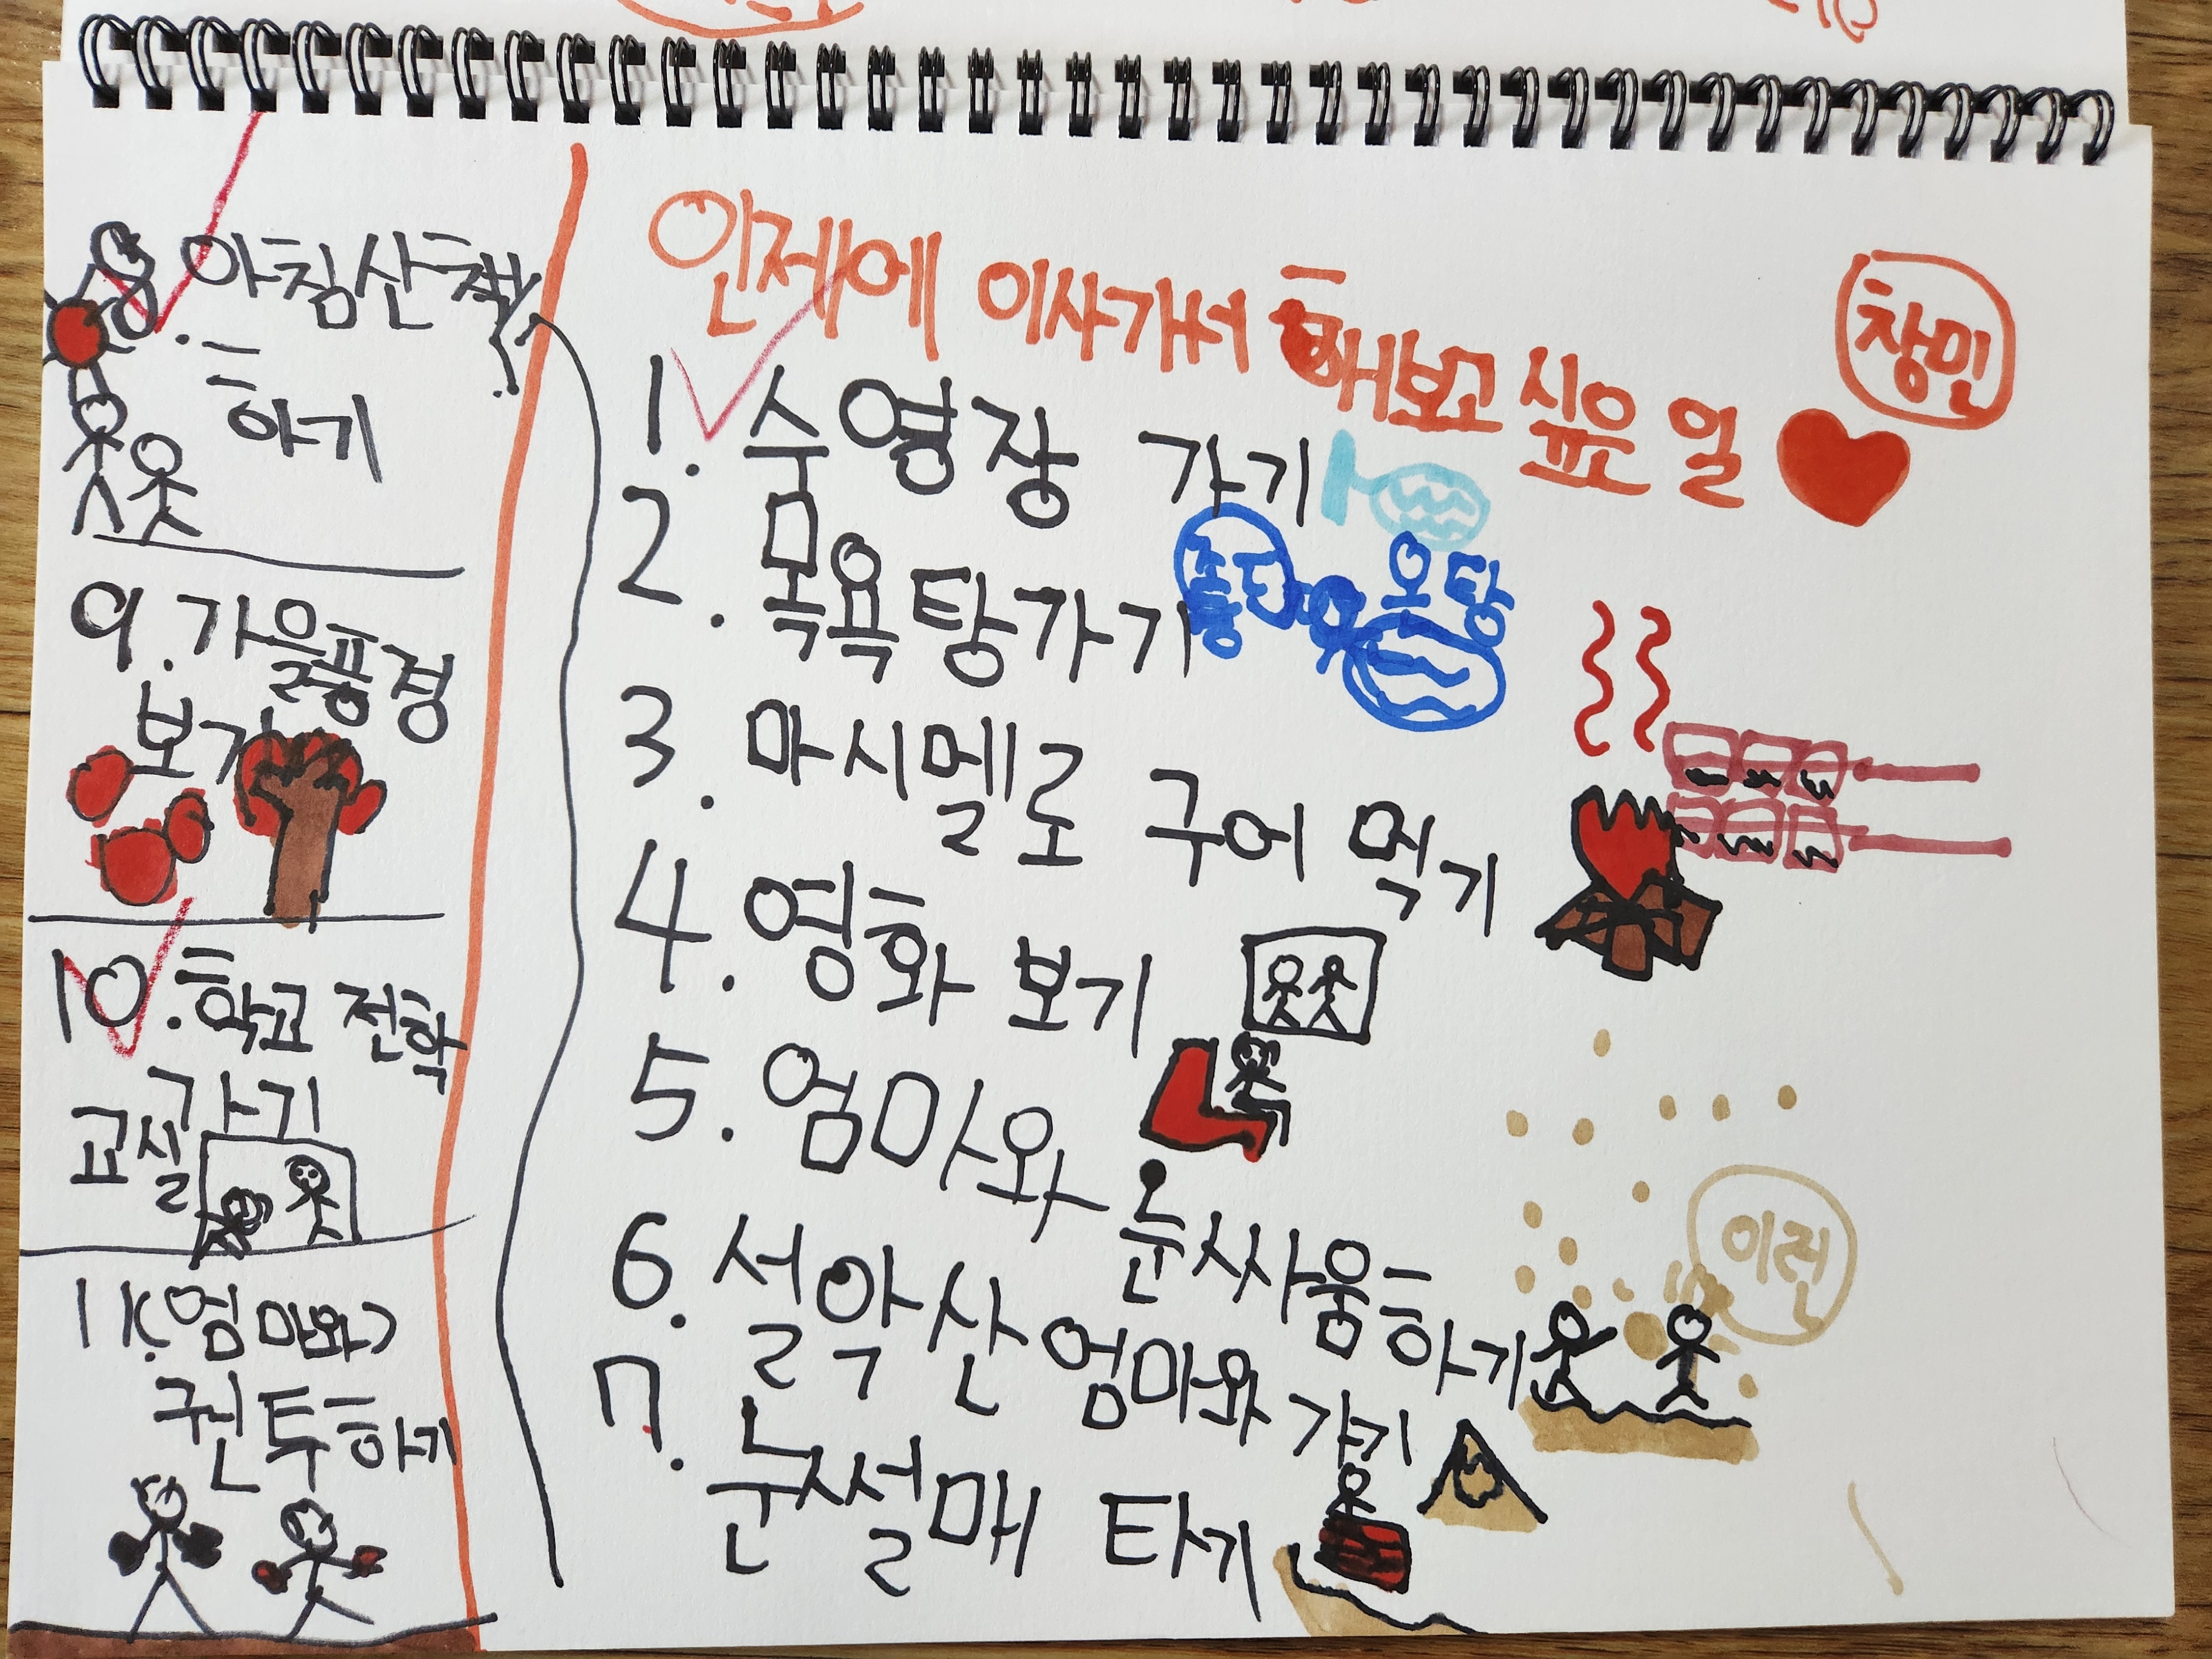 인제에 이사가서 해보고 싶은 일
창민
1. 수영장 가기
2. 목욕탕가기
온탕
3. 마시멜로 구어 먹기
4. 영화 보기
5. 엄마와 눈싸움하기
6. 설악산 엄마와 가기
7. 눈썰매 타기
8. 아침산책
하기
9. 가을풍경
보기
10. 학교 전학
가기
교실
11. (엄마와)
권투하기